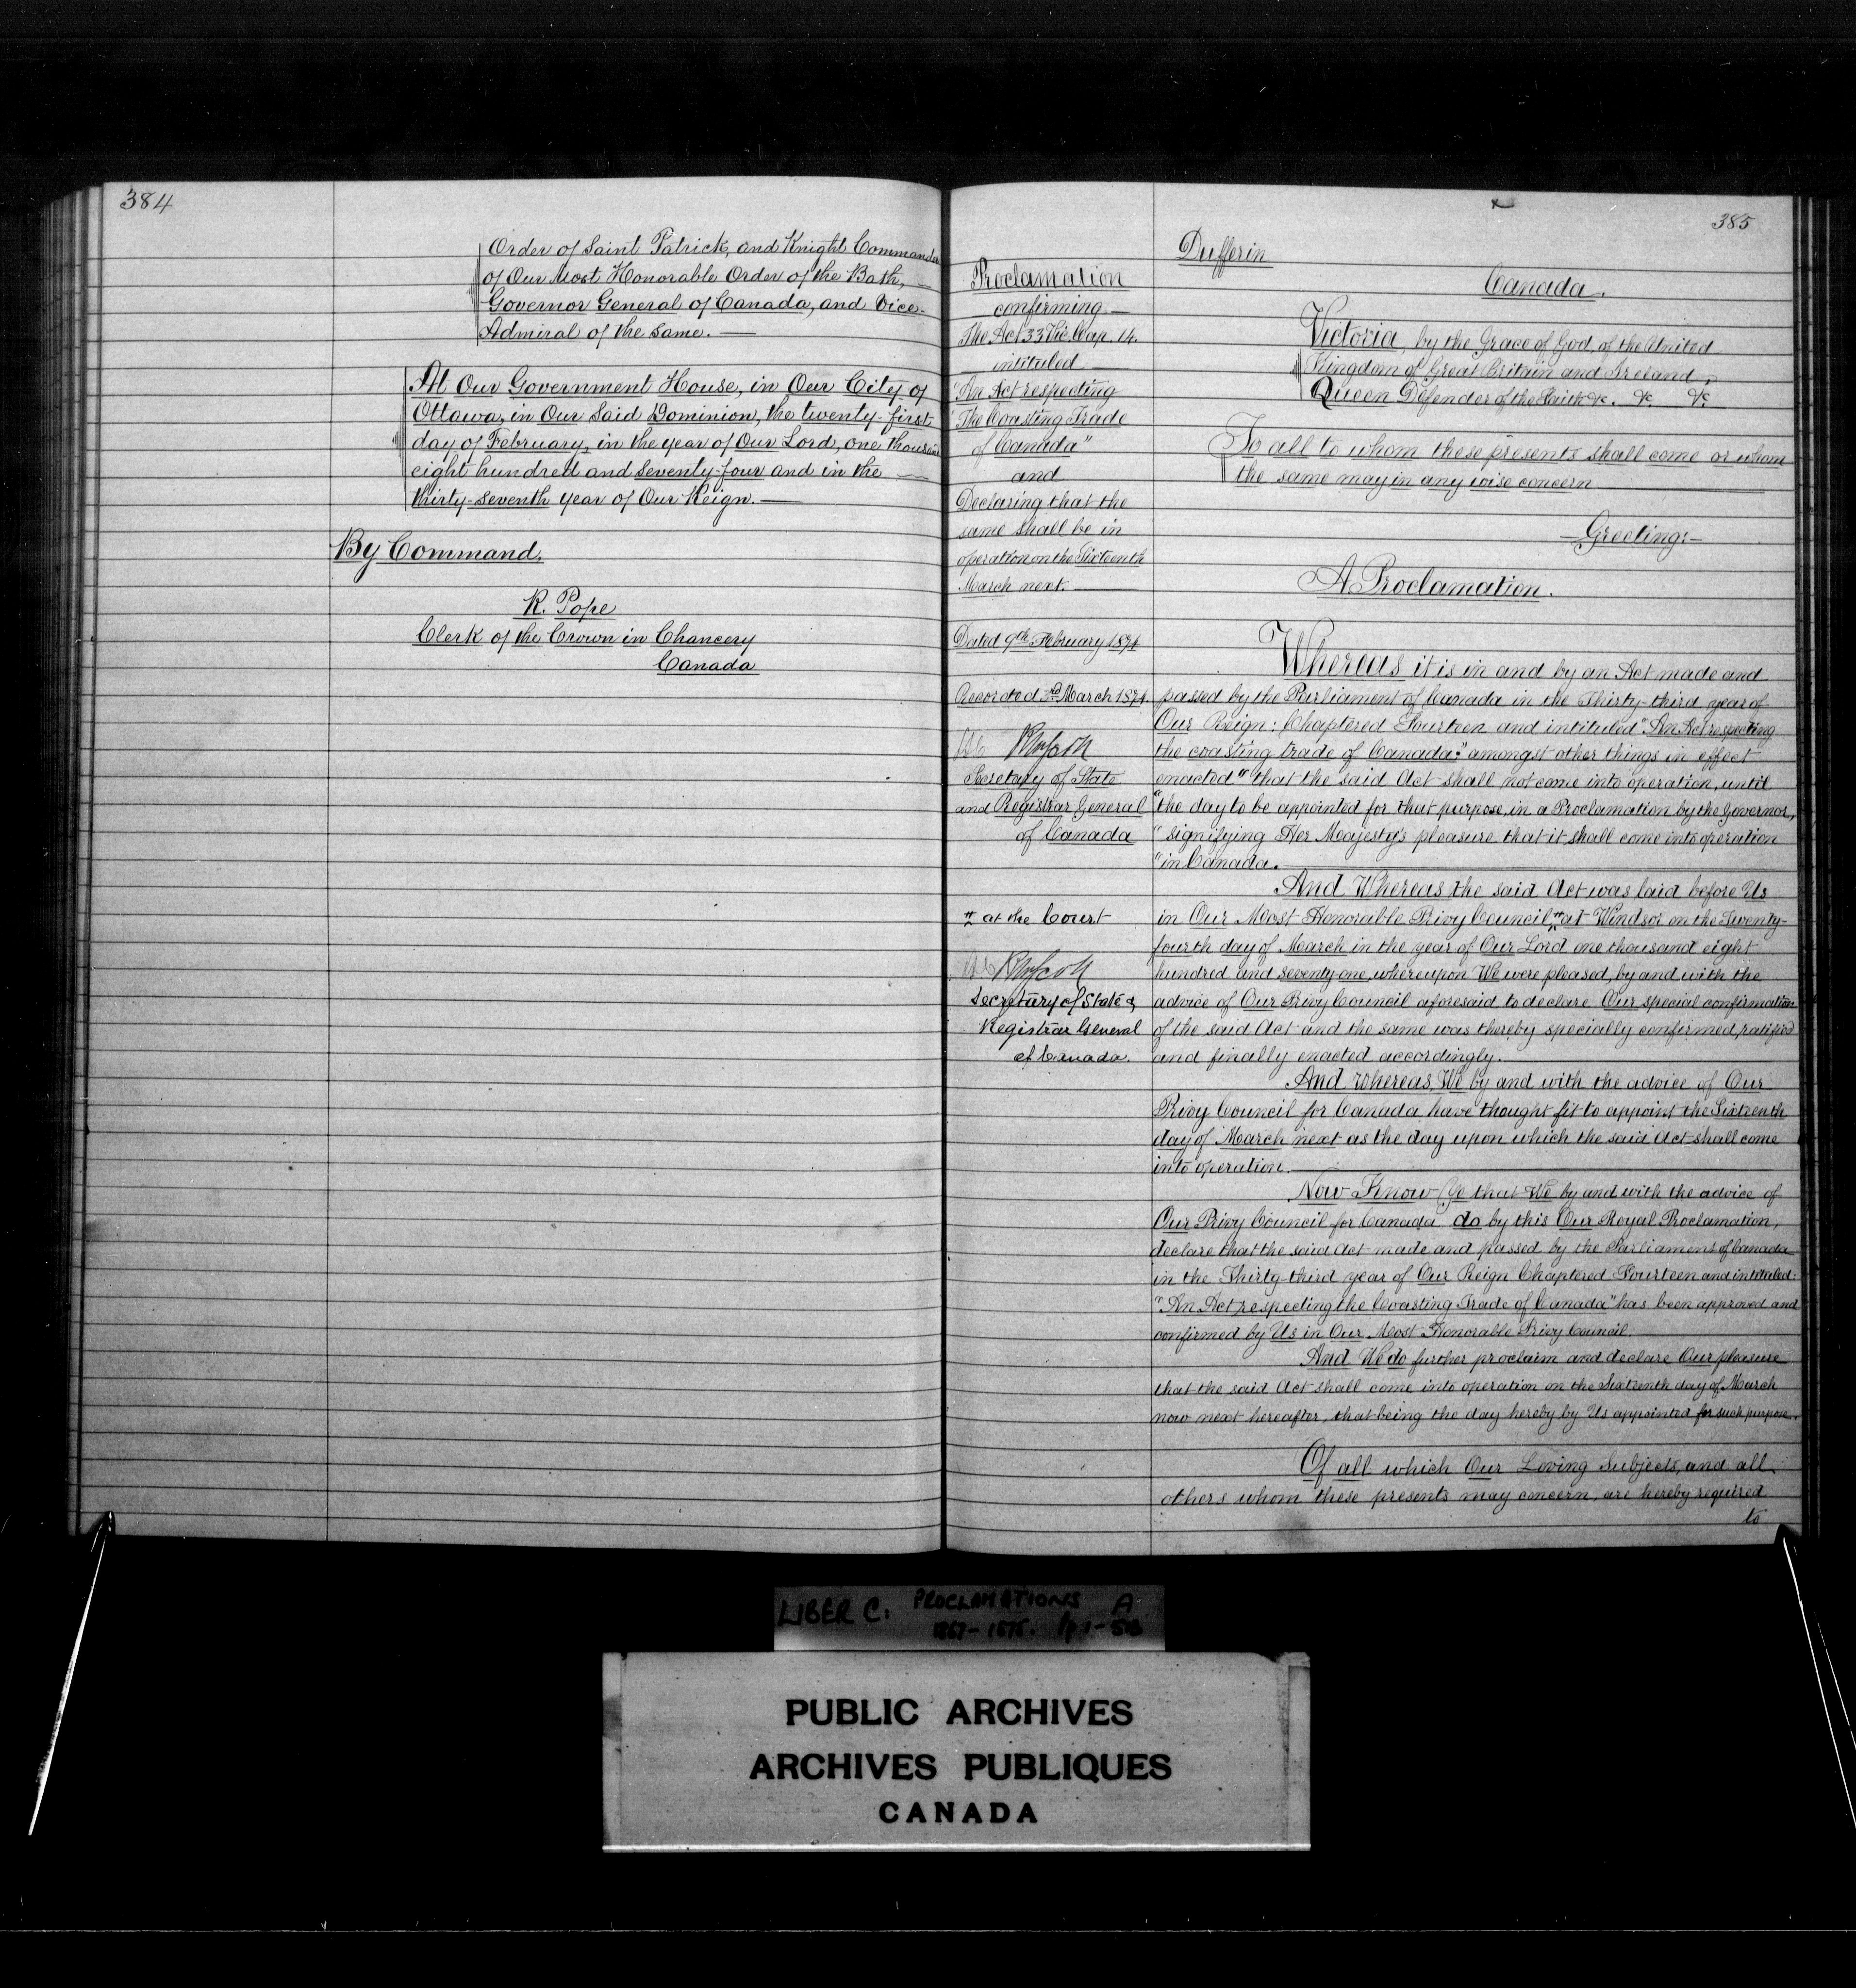 384
Order of Saint Patrick, and Knight Commander
of Our Most Honorable Order of the Bath,
Governor General of Canada, and Vice-
Admiral of the same.
At Our Government House, in Our City of
Ottawa, in Our Said Dominion, the twenty-first
day of February, in the year of Our Lord, one thousand
eight hundred and seventy-four and in the
thirty-seventh year of Our Reign.
By Command.
R. Pope
Clerk of the Crown in Chancery
Canada
385
Proclamation
confirming
The Act 33 Vic. Cap. 14.
intituled
"An Act respecting
The Coasting Trade
of Canada"
and
Declaring that the
same shall be in
operation on the Sixteenth
March next.
Dated 9th February 1874
Recorded 3rd March 1874.
RWScott
Secretary of State
and Registrar General
of Canada
at the Court
RWScott
Secretary of State &
Registrar General
of Canada.
Dufferin
Canada.
Victoria, by the Grace of God, of the United
Kingdom of Great Britain and Ireland,
Queen Defender of the Faith &c. &c. &c.
To all to whom these presents shall come or whom
the same may in any wise concern
Greeting:-
A Proclamation.
Whereas it is in and by an Act made and
passed by the Parliament of Canada in the Thirty-third year of
Our Reign: Chaptered Fourteen and intituled "An Act respecting
the coasting trade of Canada:" amongst other things in effect
enacted "that the said Act shall not come into operation, until
"the day to be appointed for that purpose, in a Proclamation by the Governor,
"signifying Her Majesty's pleasure that it shall come into operation
"in Canada.
And Whereas the said Act was laid before Us
in Our Most Honorable Privy Council, at Windsor on the Twenty-
fourth day of March in the year of Our Lord one thousand eight
hundred and seventy-one, whereupon We were pleased, by and with the
advice of Our Privy Council aforesaid to declare Our special confirmation
of the said Act and the same was thereby specially confirmed, ratified
and finally enacted accordingly.
And whereas, We by and with the advice of Our
Privy Council for Canada have thought fit to appoint the Sixteenth
day of March next as the day upon which the said Act shall come
into operation.
Now Know Ye that We by and with the advice of
Our Privy Council for Canada do by this Our Royal Proclamation,
declare that the said Act made and passed by the Parliament of Canada
in the Thirty-third year of Our Reign Chaptered Fourteen and intituled:
"An Act respecting the Coasting Trade of Canada" has been approved and
confirmed by Us in Our Most Honorable Privy Council.
And We do further proclaim and declare Our pleasure
that the said Act shall come into operation on the Sixteenth day of March
now next hereafter, that being the day hereby by Us appointed for such purpose.
Of all which Our Loving Subjects, and all
others whom these presents may concern, are hereby required
to
LIBER C. PROCLAMATIONS A
1867-1875.
PUBLIC ARCHIVES
ARCHIVES PUBLIQUES
CANADA